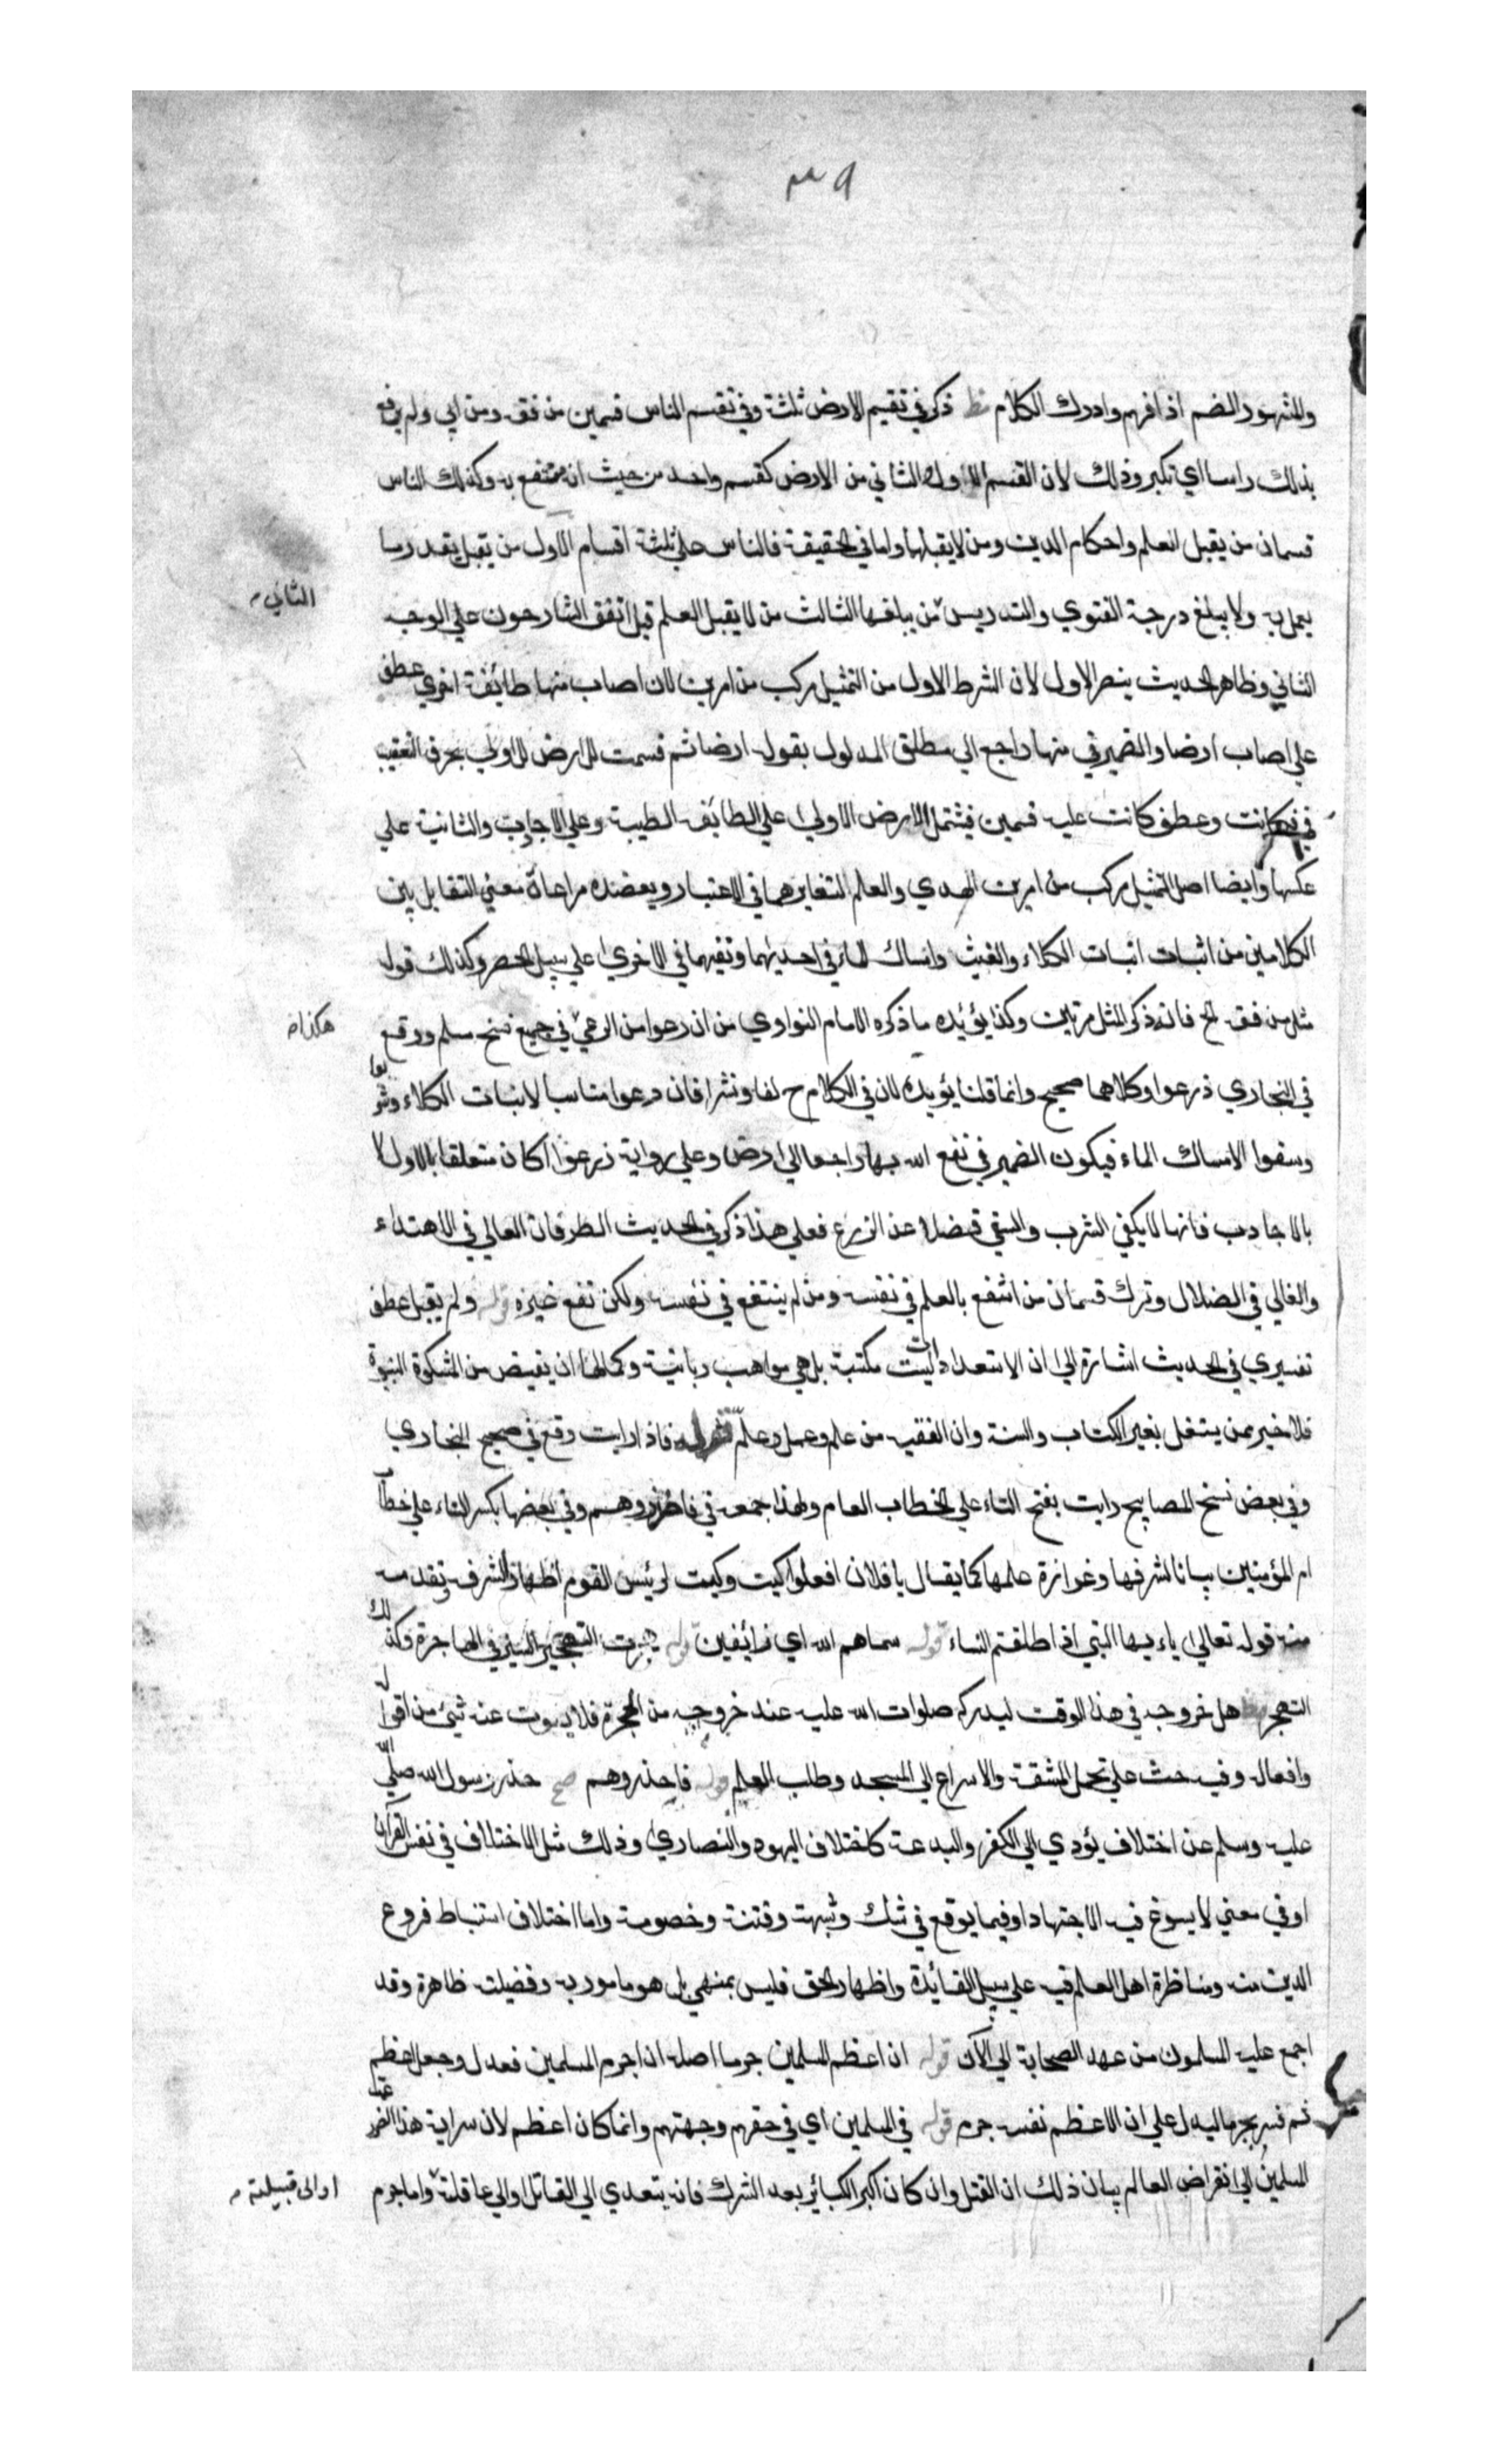 ٣٩
والمشهور الضم اذا فهم وادرك الكلام مظ ذكر في تقسيم الارض ثلثة وفي تقسم الناس قسمين من فقه ومن ابي ولم يرفع
بذلك راسا اي تكبر وذلك لان القسم الاول والثاني من الارض كقسم واحد من حيث انه منتفع به وكذلك الناس
قسمان من يقبل العلم واحكام الدين ومن لا يقبلها واما في الحقيقة فالناس علي ثلثة اقسام الاول من تقبل بقدر ما
الثاني
يعمل به ولا يبلغ درجة الفتوي والتدريس من يبلغها الثالث من لا يقبل العلم قيل اتفق الشارحون علي الوجه
الثاني وظاهر الحديث ينصر الاول لان الشرط الاول من التمثيل مركب من امرين لان اصاب منها طائفة اخري عطف
علي اصاب ارضا والضمير في منها راجع الي مطلق المدلول بقوله ارضا ثم قسمت الارض الاولي بحرف التعقيب
في فكانت وعطف كانت عليه قسمين فيشتمل الارض الاولي علي الطائفه الطيبة وعلي الاجادب والثانية علي
عكسها وايضا اصل التمثيل مركب من امرين الهدي والعلم لتغايرهما في الاعتبار ويعضده مراعاة معني التقابل بين
الكلامين من اثبات انبات الكلاء والغيث وامساك الماء في احديهما ونفيهما في الاخري علي سبيل الحصر وكذلك قوله
هكذا
مثل من فقه الخ فانه ذكر المثل مرتين وكذا يؤيده ما ذكره الامام النواوي من ان رعوا من الرعي في جميع نسخ مسلم ووقع
في البخاري زرعوا وكلاهما صحيح وانما قلنا يؤيده لان في الكلام ح لفا ونشرا فان رعوا مناسبا لانبات الكلاء وشربوا
وسقوا الامساك الماء فيكون الضمير في نفع الله بها راجعا الي ارض وعلي رواية زرعوا كان متعلقا بالاول لا
بالاجادب فانها لا يكفي الشرب والسقي فضلا عن الزرع فعلي هذا ذكر في الحديث الطرفان العالي في الاهتداء
والغالي في الضلال وترك قسمان من انتفع بالعلم في نفسه ومن لم ينتفع في نفسه ولكن نفع غيره قوله ولم يقبل عطف
تفسيري في الحديث اشارة الي ان الاستعدادات ليست مكتسبة بل هي مواهب ربانية وكمالها ان تفيض من المشكوة النبوة
فلا خير بمن يشتغل بغير الكتاب والسنة وان الفقيه من علم وعمل وعلم قوله فاذا رايت وقع في صحيح البخاري
وفي بعض نسخ المصابيح رايت بفتح التاء علي الخطاب العام ولهذا جمعه في فاحذروهم وفي بعضها بكسر التاء علي خطاب
ام المؤمنين بيانا لشرفها وغزارة علمها كما يقال يا فلان افعلوا كيت وكيت لرئيس القوم اظهارا لشرفه وتقدمه
منه قوله تعالي يا ءيها النبي اذا طلقتم النساء قوله سماهم الله اي زائغين قوله هجرت التهجير السير في الهاجرة وكذلك
التهجر مظ هل خروجه في هذا الوقت ليدركه صلوات الله عليه عند خروجه من الحجرة فلا يفوت عنه شئ من اقواله
وافعاله وفيه حث علي تحمل المشقة والاسراع الي المسجد وطلب العلم قوله فاحذروهم مح حذر رسول الله صلي الله
عليه وسلم عن اختلاف يؤدي الي الكفر والبدعة كاختلاف اليهود والنصاري وذلك مثل الاختلاف في نفس القرآن
او في معني لا يسوغ فيه الاجتهاد او فيما يوقع في شك وشبهة وفتنة وخصومة واما اختلاف استنباط فروع
الدين منه ومناظرة اهل العلم فيه علي سبيل الفائدة واظهار الحق فليس بمنهي بل هو مامور به وفضيلته ظاهرة وقد
اجمع عليه المسلمون من عهد الصحابة الي الآن قوله ان اعظم المسلمين جرما اصله ان اجرم المسلمين فعدل وجعل اعظم
ثم فسر بجرما ليدل علي ان الاعظم نفسه جرم قوله في المسلمين اي في حقهم وجهتهم وانما كان اعظم لان سراية هذا الضرر عمت
المسلمين الي انقراض العالم بيان ذلك ان القتل وان كان اكبر الكبائر بعد الشرك فانه يتعدي الي القاتل او الي عاقلة واما جرم
او الي قبيلته